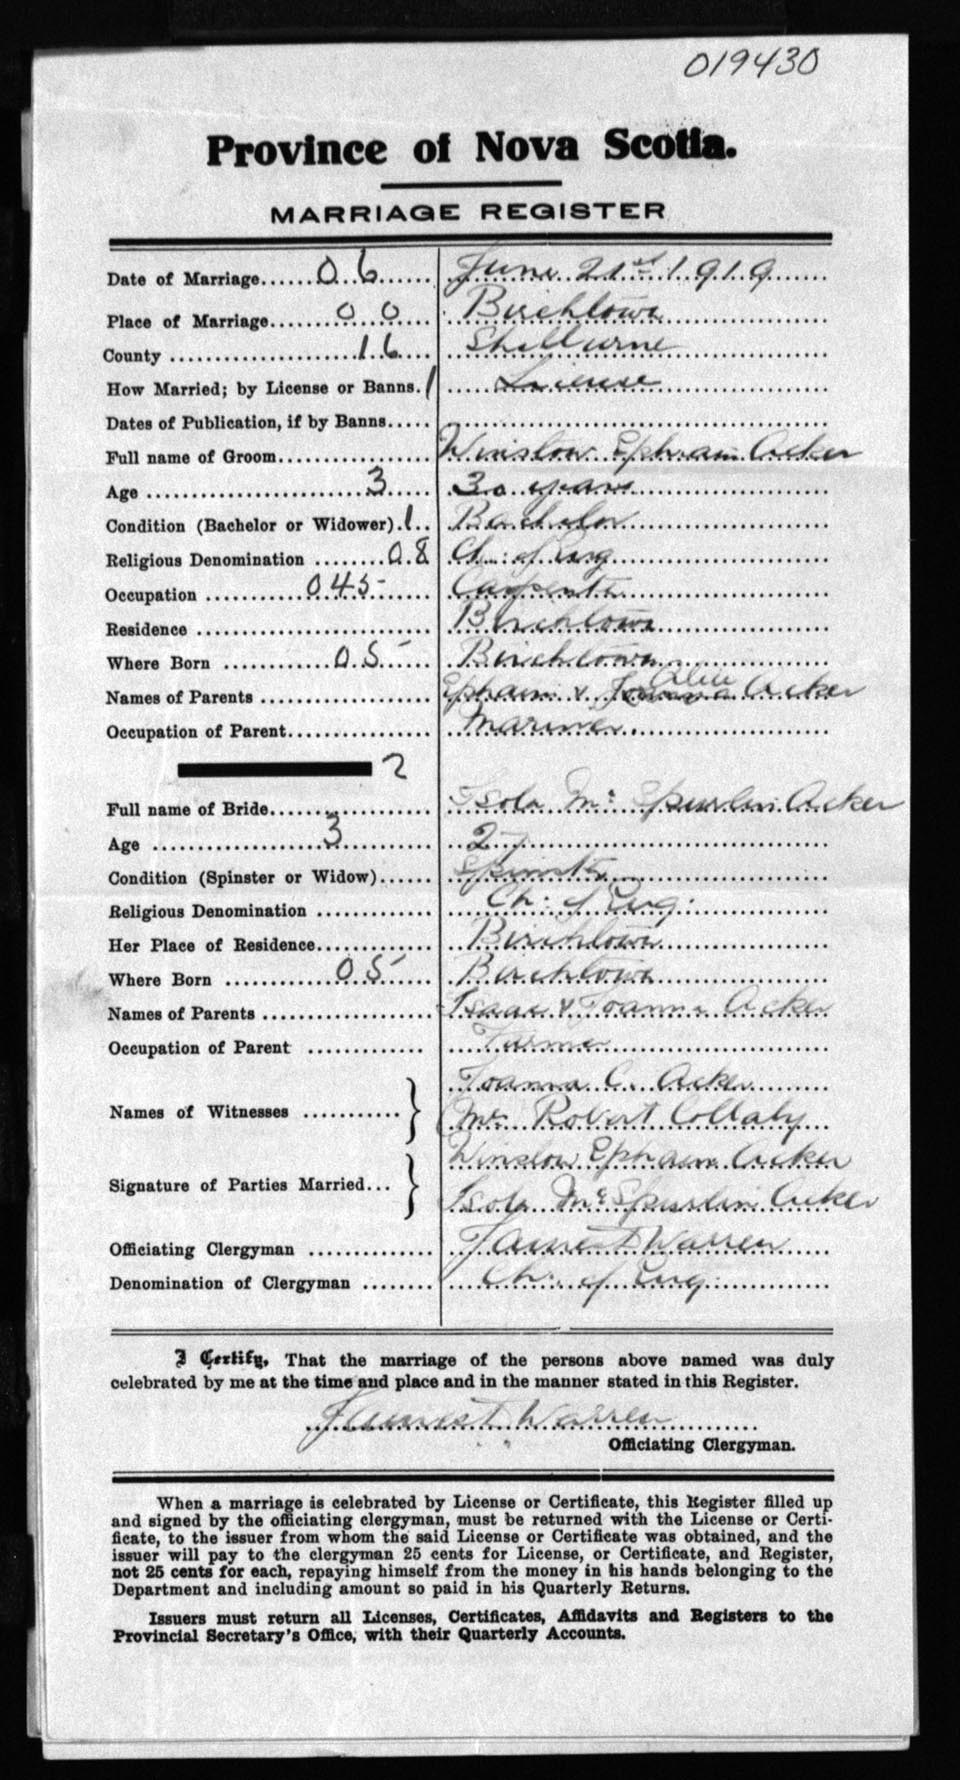 019430
Province of Nova Scotia.
MARRIAGE REGISTER
Date of Marriage......06...... June 21st 1919
Place of Marriage......00.... Birchtown
County ...................16.... Shelburne
How Married; by License or Banns. 1 License
Dates of Publication, if by Banns.....
Full name of Groom.................. Winslow Ephraim Acker
Age ......................3..... 30 years
Condition (Bachelor or Widower).1.. Bachelor
Religious Denomination .......08 Ch: of Eng
Occupation ..........045....... Carpenter
Residence ........................... Birchtown
Where Born ..........05..... Birchtown
Alice
Names of Parents .................... Ephraim & Acker
Occupation of Parent................. Mariner
2
Full name of Bride................... Isola Mc Spurlin Acker
Age .................3......... 27
Condition (Spinster or Widow)...... Spinster
Religious Denomination ............. Ch: of Eng.
Her Place of Residence............. Birchtown
Where Born ..........05..... Birchtown
Names of Parents ................... Isaac & Joanna Acker
Occupation of Parent ............. Farmer
Joanna C. Acker
Names of Witnesses ........... } Robert Collaby
Winslow Ephraim Acker
Signature of Parties Married... } Isola Mc Spurlin Acker
Officiating Clergyman ............. James T Warren
Denomination of Clergyman ........ Ch: of Eng.
I Certify, That the marriage of the persons above named was duly
celebrated by me at the time and place and in the manner stated in this Register.
James T Warren
Officiating Clergyman.
When a marriage is celebrated by License or Certificate, this Register filled up
and signed by the officiating clergyman, must be returned with the License or Certi-
ficate, to the issuer from whom the said License or Certificate was obtained, and the
issuer will pay to the clergyman 25 cents for License, or Certificate, and Register,
not 25 cents for each, repaying himself from the money in his hands belonging to the
Department and including amount so paid in his Quarterly Returns.
Issuers must return all Licenses, Certificates, Affidavits and Registers to the
Provincial Secretary's Office, with their Quarterly Accounts.